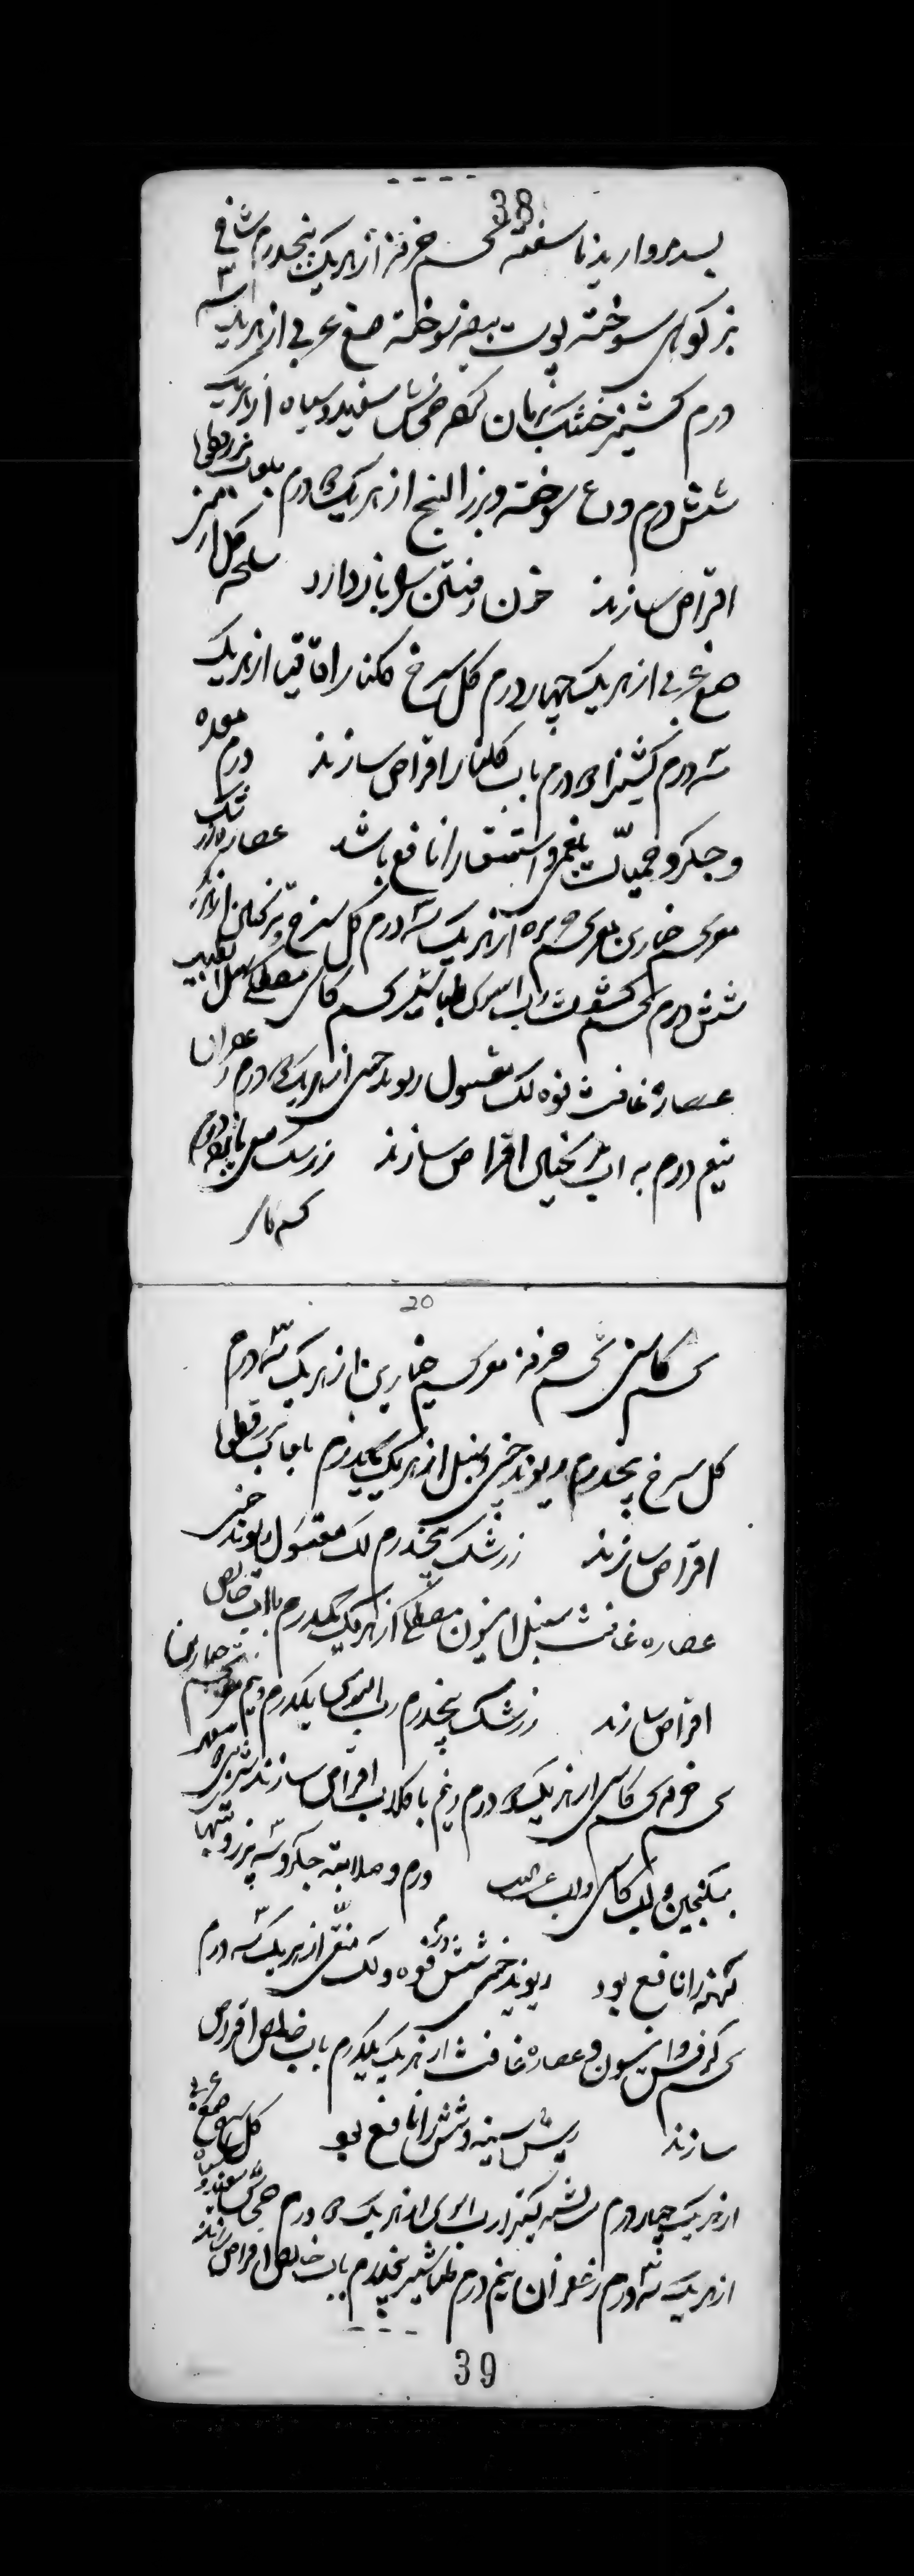 38
بسد مروارید ناسفته تخم خرفه از هریک پنجدرم شاخ
بز کوهی سوخته پوست بیضه سوخته صمغ عربی از هریک سه
درم کشنیز خشک بریان کرده خشخاش سفید و سیاه از هریک
شش درم ودع سوخته و بزرالبنج از هریک درم بلعاب بزرقطونا
اقراص سازند خون رفتن را باز دارد گل ارمنی
صمغ عربی از هریک چهار درم گل سرخ گلنار اقاقیا از هریک
سه درم کتیرا درم باب گلنار اقراص سازند درم معده
و جگر و حمیات بلغمی و استسقا را نافع باشد عصاره زرشک
مغز تخم خیارین مغز تخم از هریک سه درم گل سرخ ترنجبین از هریک
شش درم تخم کشوث رب السوس طباشیر تخم کاسنی مصطکی سنبل الطیب
عصاره غافث فوه لک مغسول ریوند چینی از هریک درم زعفران
نیم درم به آب ترنجبین اقراص سازند زرشک
20
تخم کاسنی تخم خرفه مغز تخم خیارین از هریک سه درم
گل سرخ پنجدرم ریوند چینی سنبل از هریک یکدرم بلعاب بزرقطونا
اقراص سازند زرشک پنجدرم لک مغسول ریوند چینی
عصاره غافث سنبل انیسون مصطکی از هریک یکدرم باب خالص
اقراص سازند زرشک پنجدرم رب السوس یکدرم و نیم مغز تخم خیارین
تخم خرفه تخم کاسنی از هریک درم و نیم با گلاب اقراص سازند
بسکنجبین و آب کاسنی و آب عنب الثعلب ورم و صلابت جگر و سپرز و تبها
کهنه را نافع بود ریوند چینی شش درم فوه و لک منقی از هریک سه درم
تخم کرفس و انیسون و عصاره غافث از هریک یکدرم باب خالص اقراص
سازند ریش سینه و شش را نافع بود گل سرخ صمغ عربی
از هریک چهار درم نشاسته کتیرا رب السوس از هریک درم خشخاش سفید و سیاه
از هریک سه درم زعفران نیم درم طباشیر پنجدرم باب خالص اقراص سازند
39